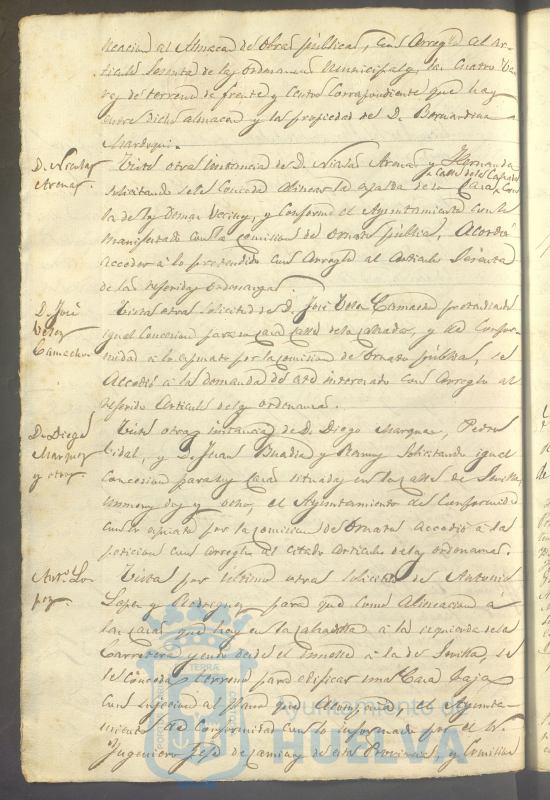 neacion al Almacen de Obras públicas, con Arreglo al Ar-
ticulo Sesenta de las Ordenanzas Municipales, las Cuatro Va-
ras de terreno de frente y Centro Correspondiente que hay
entre dicho almacen y las propiedad de D. Bernardina
Marchequi.
D. Nicolas
Arenas.
Vista otra instancia de D. Nicolas Arenas y Hernandez
Calle de la Calzada
solicitando se le Conceda Alinear la espalda de su Casa Con
la de los demas Vecinos, y Conforme el Ayuntamiento con lo
manifestado con la comision de Ornato pública, Acordó
acceder á lo pretendido con arreglo al Articulo Sesenta
de las referidas Ordenanzas.
D. José
Velez
Camacho.
Vista otra solicitud de D. José Velez Camacho pretendiendo
igual Concesion para su Casa Calle de la Calzada, y de Confor-
midad á lo espuesto por la comision de Ornato pública, se
Accedió á la demanda de este interesado con Arreglo al
referido Articulo de las ordenanzas.
D. Diego
Marquez
y otros
Vista otra instancia de D. Diego Marquez, Pedro
Vidal, y D. Juan Buadia y Ramos solicitando igual
Concesion para sus Casas situadas en la calle de Sevilla
números dos y ocho, el Ayuntamiento de Conformidad
con lo espuesto por la comision de Ornato accedió á la
peticion con arreglo al citado Articulo de las ordenanzas.
Antº. Lo-
pez.
Vista por último otra solicitud de Antonio
Lopez y Rodriguez para que como Alineacion á
las Casas que hay en la calzadilla á la izquierda de la
Carretera yendo desde el muelle á la de Sevilla, se
le Conceda terreno para edificar una Casa baja
con sujecion al plano que Acompaña, el Ayunta-
miento de Conformidad con lo informado por el Sr.
Yngeniero Jefe de caminos de esta Provincia, y Comision
Ayuntamiento de
HUELVA